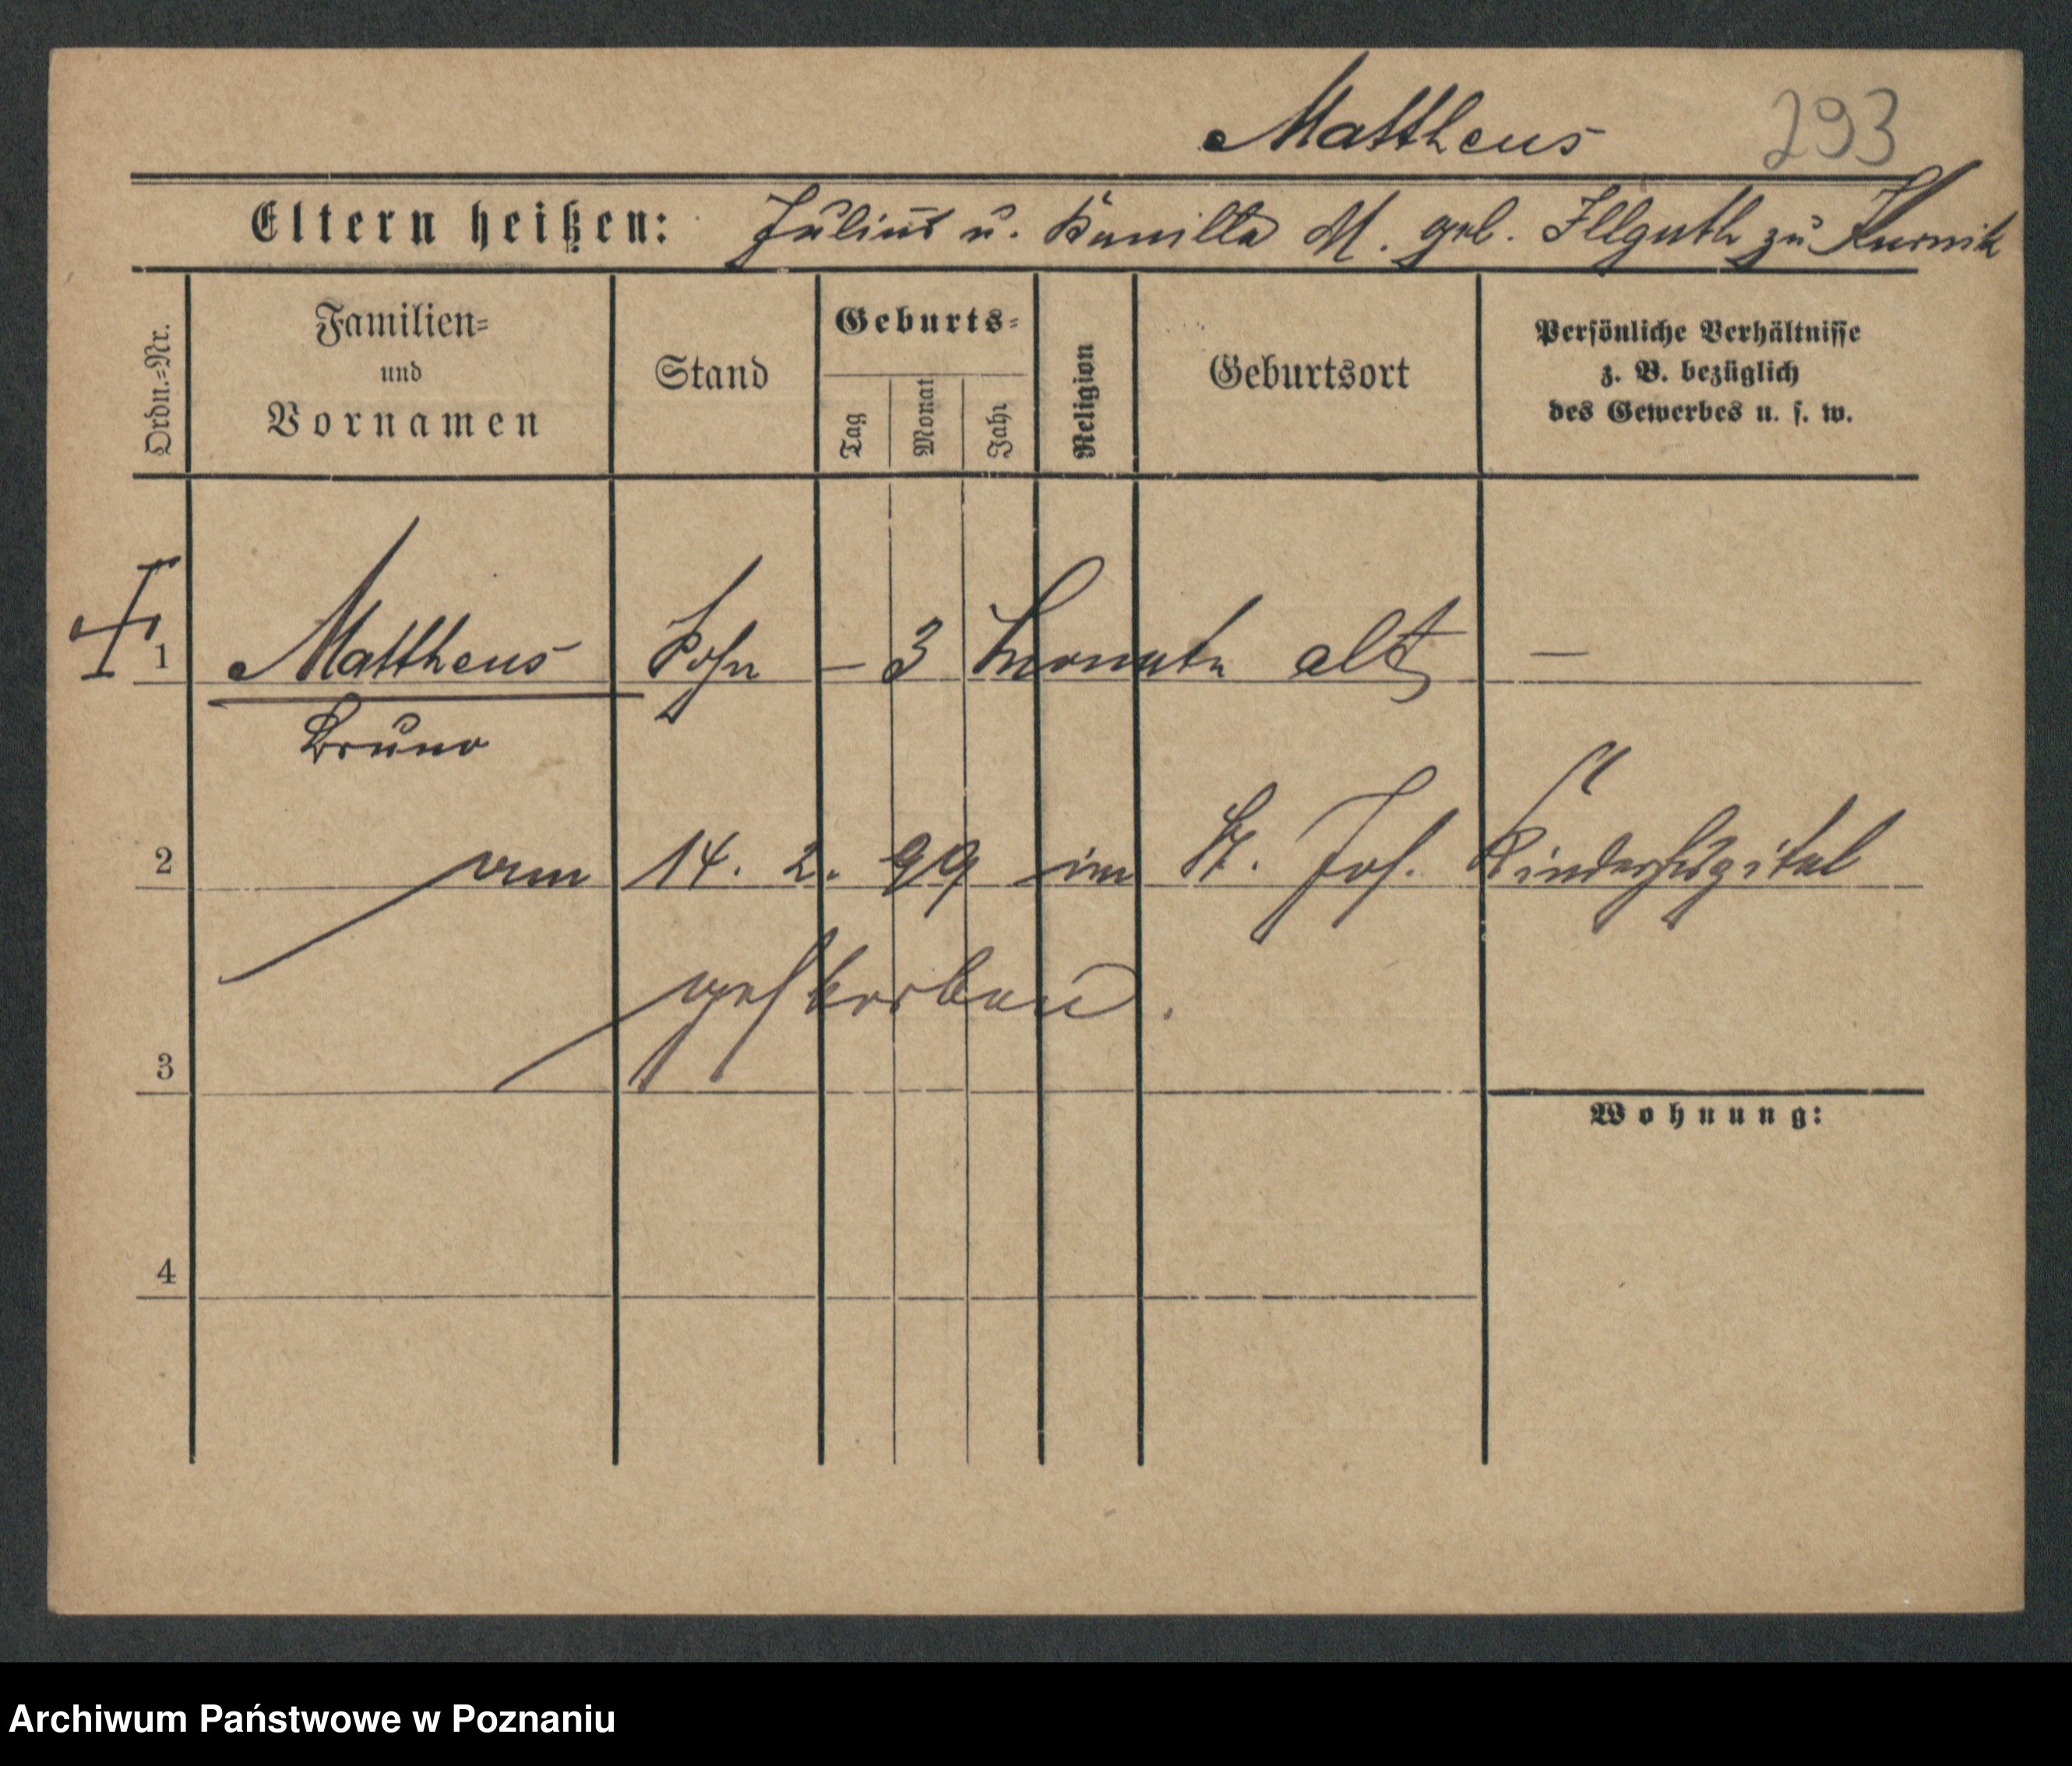 Mattheus 293
Eltern heißen: Julius u. Kamilla M. geb. Illguth zu Kurnik
Ordn.=Nr.
Familien=
und
Vornamen
Stand
Geburts=
Tag
Monat
Jahr
Religion
Geburtsort
Persönliche Verhältnisse
z. B. bezüglich
des Gewerbes u. s. w.
1 Mattheus Sohn – 3 Monate alt –
Bruno
2 am 14. 2. 99 im St. Jos. Kinderhospital
gestorben.
3
Wohnung:
4
Archiwum Państwowe w Poznaniu